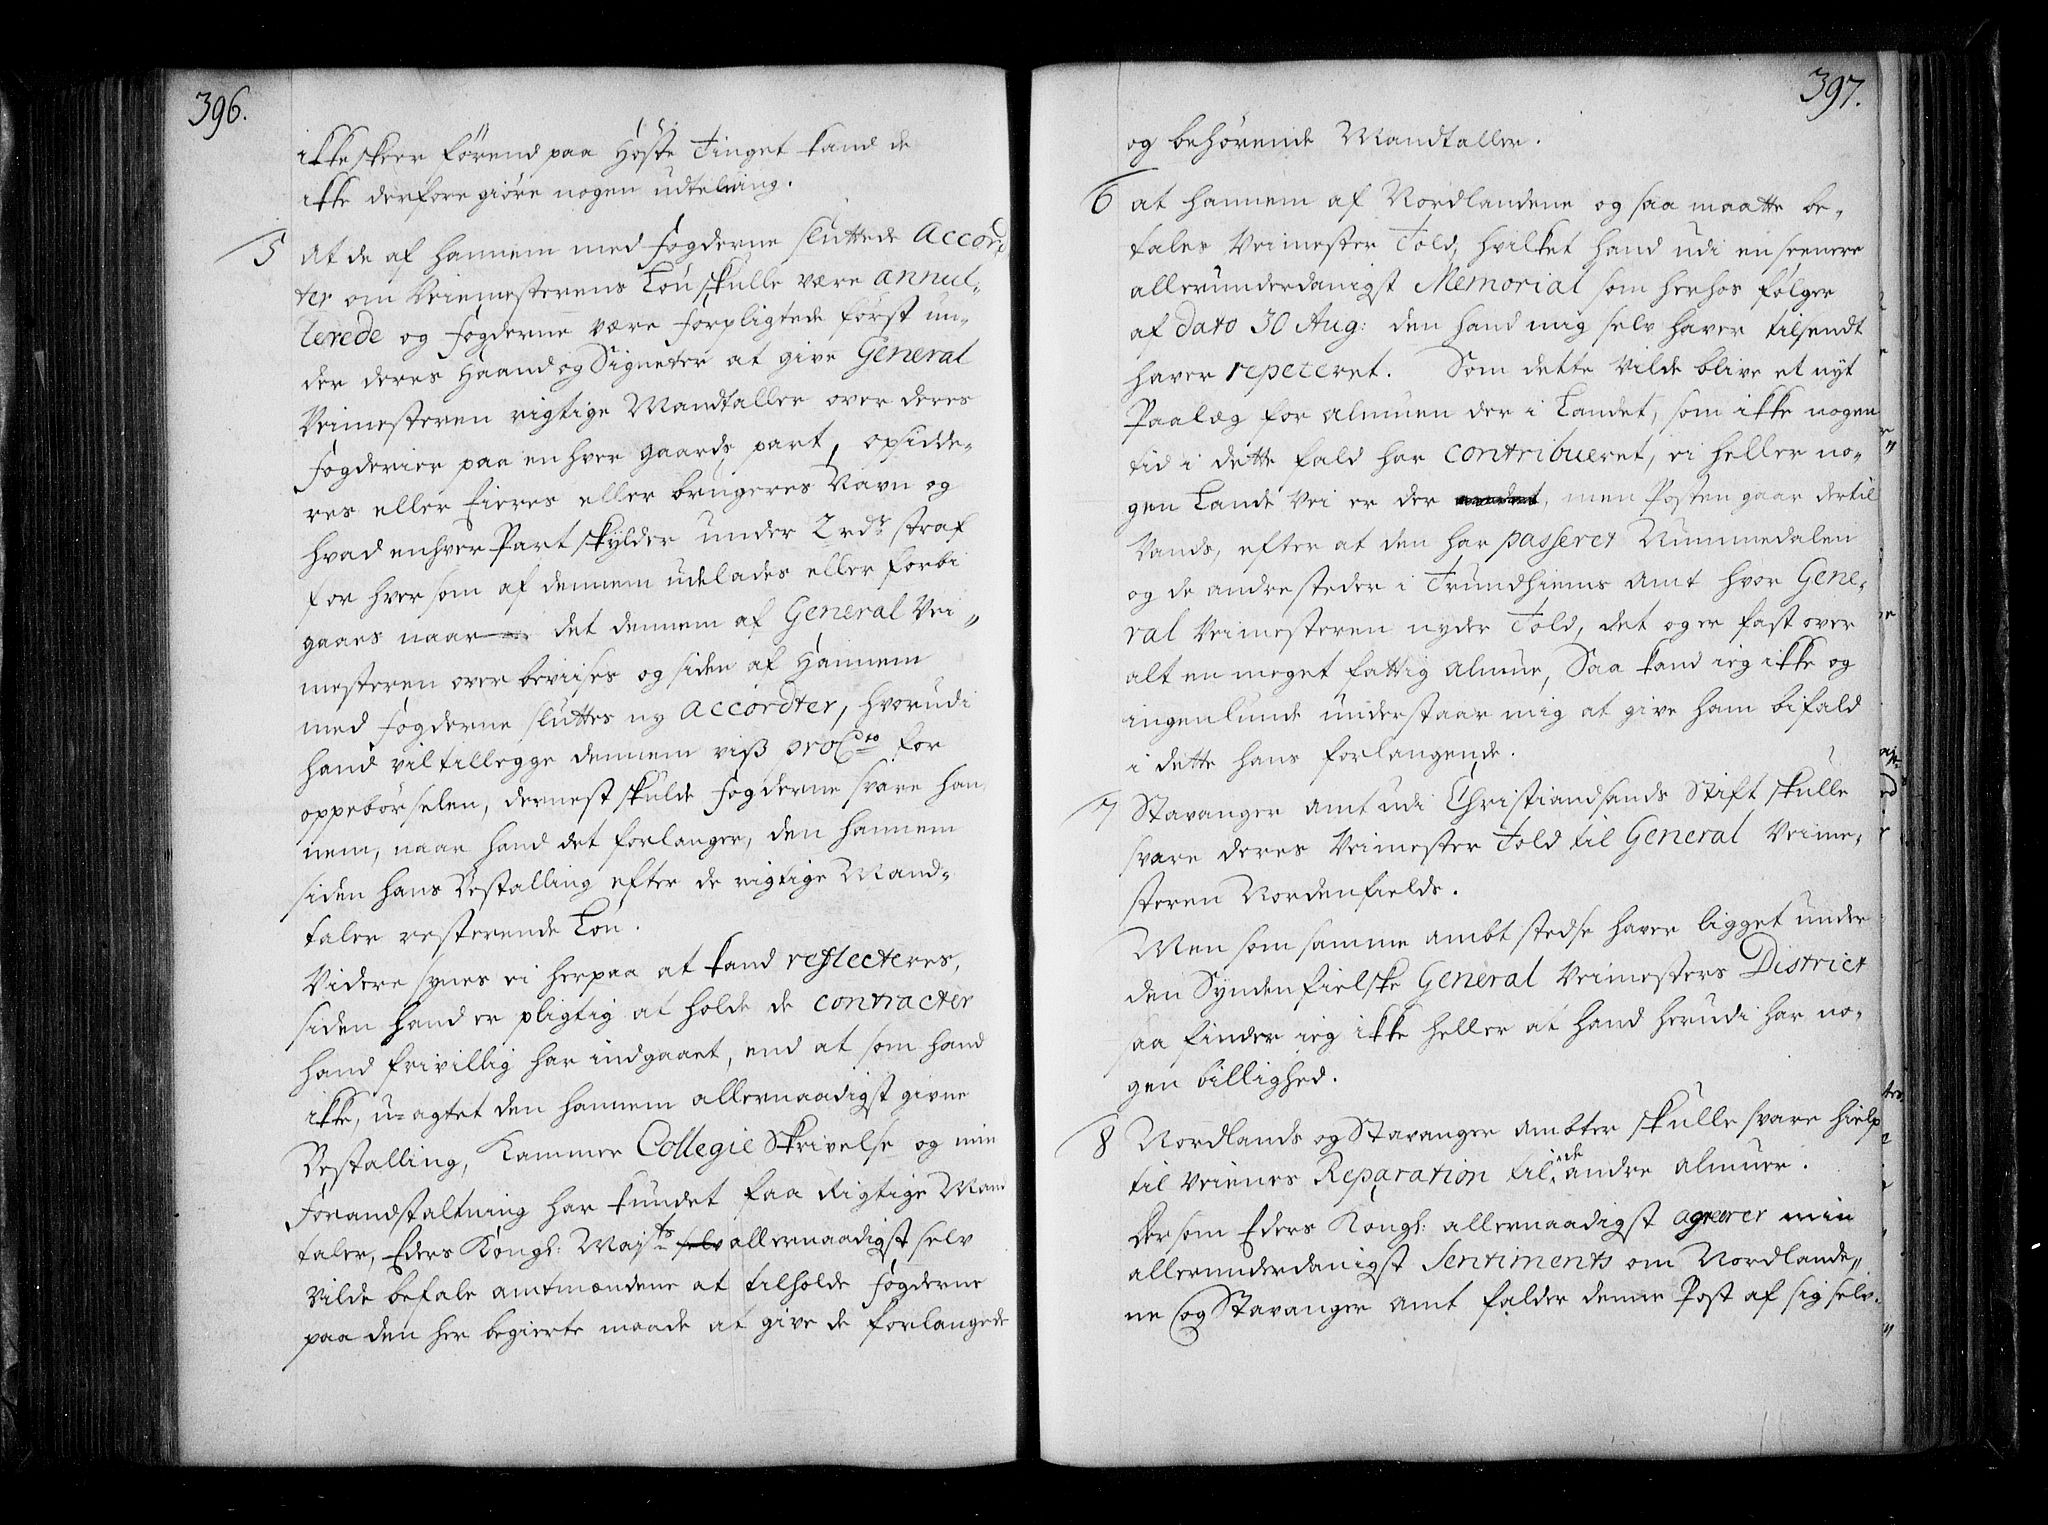 396.
ikke skeer førend paa Høste Tinget kand de
ikke derfore giøre nogen udteling.
5 At de af hannem med fogderne sluttede Accord
ter om Veimesterens Løn skulle være annul-
lerede og fogderne være forpligtede først un-
der deres Haand og Signeter at give General
Veimesteren rigtige Mandtaller over deres
fogderier paa en hver gaards part, opsidde-
res eller Eieres eller brugeres Navn og
hvad enhver Part skylder under 2 rdr straf
for hver som af dennem udelades eller forbi
gaaes naar det dennem af General Vei-
mesteren over beviises og siden af Hannem
med fogderne sluttes ny Accordter, hvorudi
hand vil tillegge dennem viß pro Cto for
oppebørselen, dernest skulde fogderne svare han
nem, naar hand det forlanger, den hannem
siden hans Bestalling efter de rigtige Mand-
taler resterende Løn.
Videre synes ei herpaa at kand reflecteres,
siden hand er pligtig at holde de contracter
hand frivillig har indgaaet, end at som hand
ikke, u-agtet den hannem allernaadigst givne
Bestalling, Kammer Collegie Skrivelse og min
Foranstaltning har kundet faa Rigtige Man
taler, Eders Kongl: Majts selv allernaadigst selv
vilde befale amtmændene at tilholde fogderne
paa den her begierte maade at give de forlangede
397.
og behørende Mandtaller.
6 at hannem af Nordlandene og saa maatte be-
tales Veimester Told, hvilket hand udi en seenere
allerunderdanigst Memorial som herhos følger
af dato 30 Aug: den hand mig selv haver tilsendt
haver repeteret. Som dette vilde blive et nyt
Paalæg for almuen der i Landet, som ikke nogen
tid i dette fald har contribueret, ei heller no-
gen Lande Vei er der, men Posten gaar dertil
Vands, efter at den har passeret Nummedalen
og de andre steder i Trundhiems Amt hvor Gene-
ral Veimesteren nyder Told, det og er fast over
alt en meget fattig almue, Saa kand ieg ikke og
ingenlunde understaar mig at give ham bifald
i dette hans forlangende.
7 Stavanger Amt udi Christiandsands Stift skulle
svare deres Veimester Told til General Veime-
steren Nordenfields.
Men som samme ambt stedse haver ligget under
den Syndenfielske General Veimesters District
saa finder ieg ikke heller at hand herudi har no-
gen billighed.
8 Nordlands og Stavanger Ambter skulle svare hielp
til Veienes Reparation til de andre Almuer.
Dersom Eders Kongl: allernaadigst agreerer min
allerunderdanigst Sentiments om Nordlande-
ne og Stavanger amt falder denne Post af sig selv.